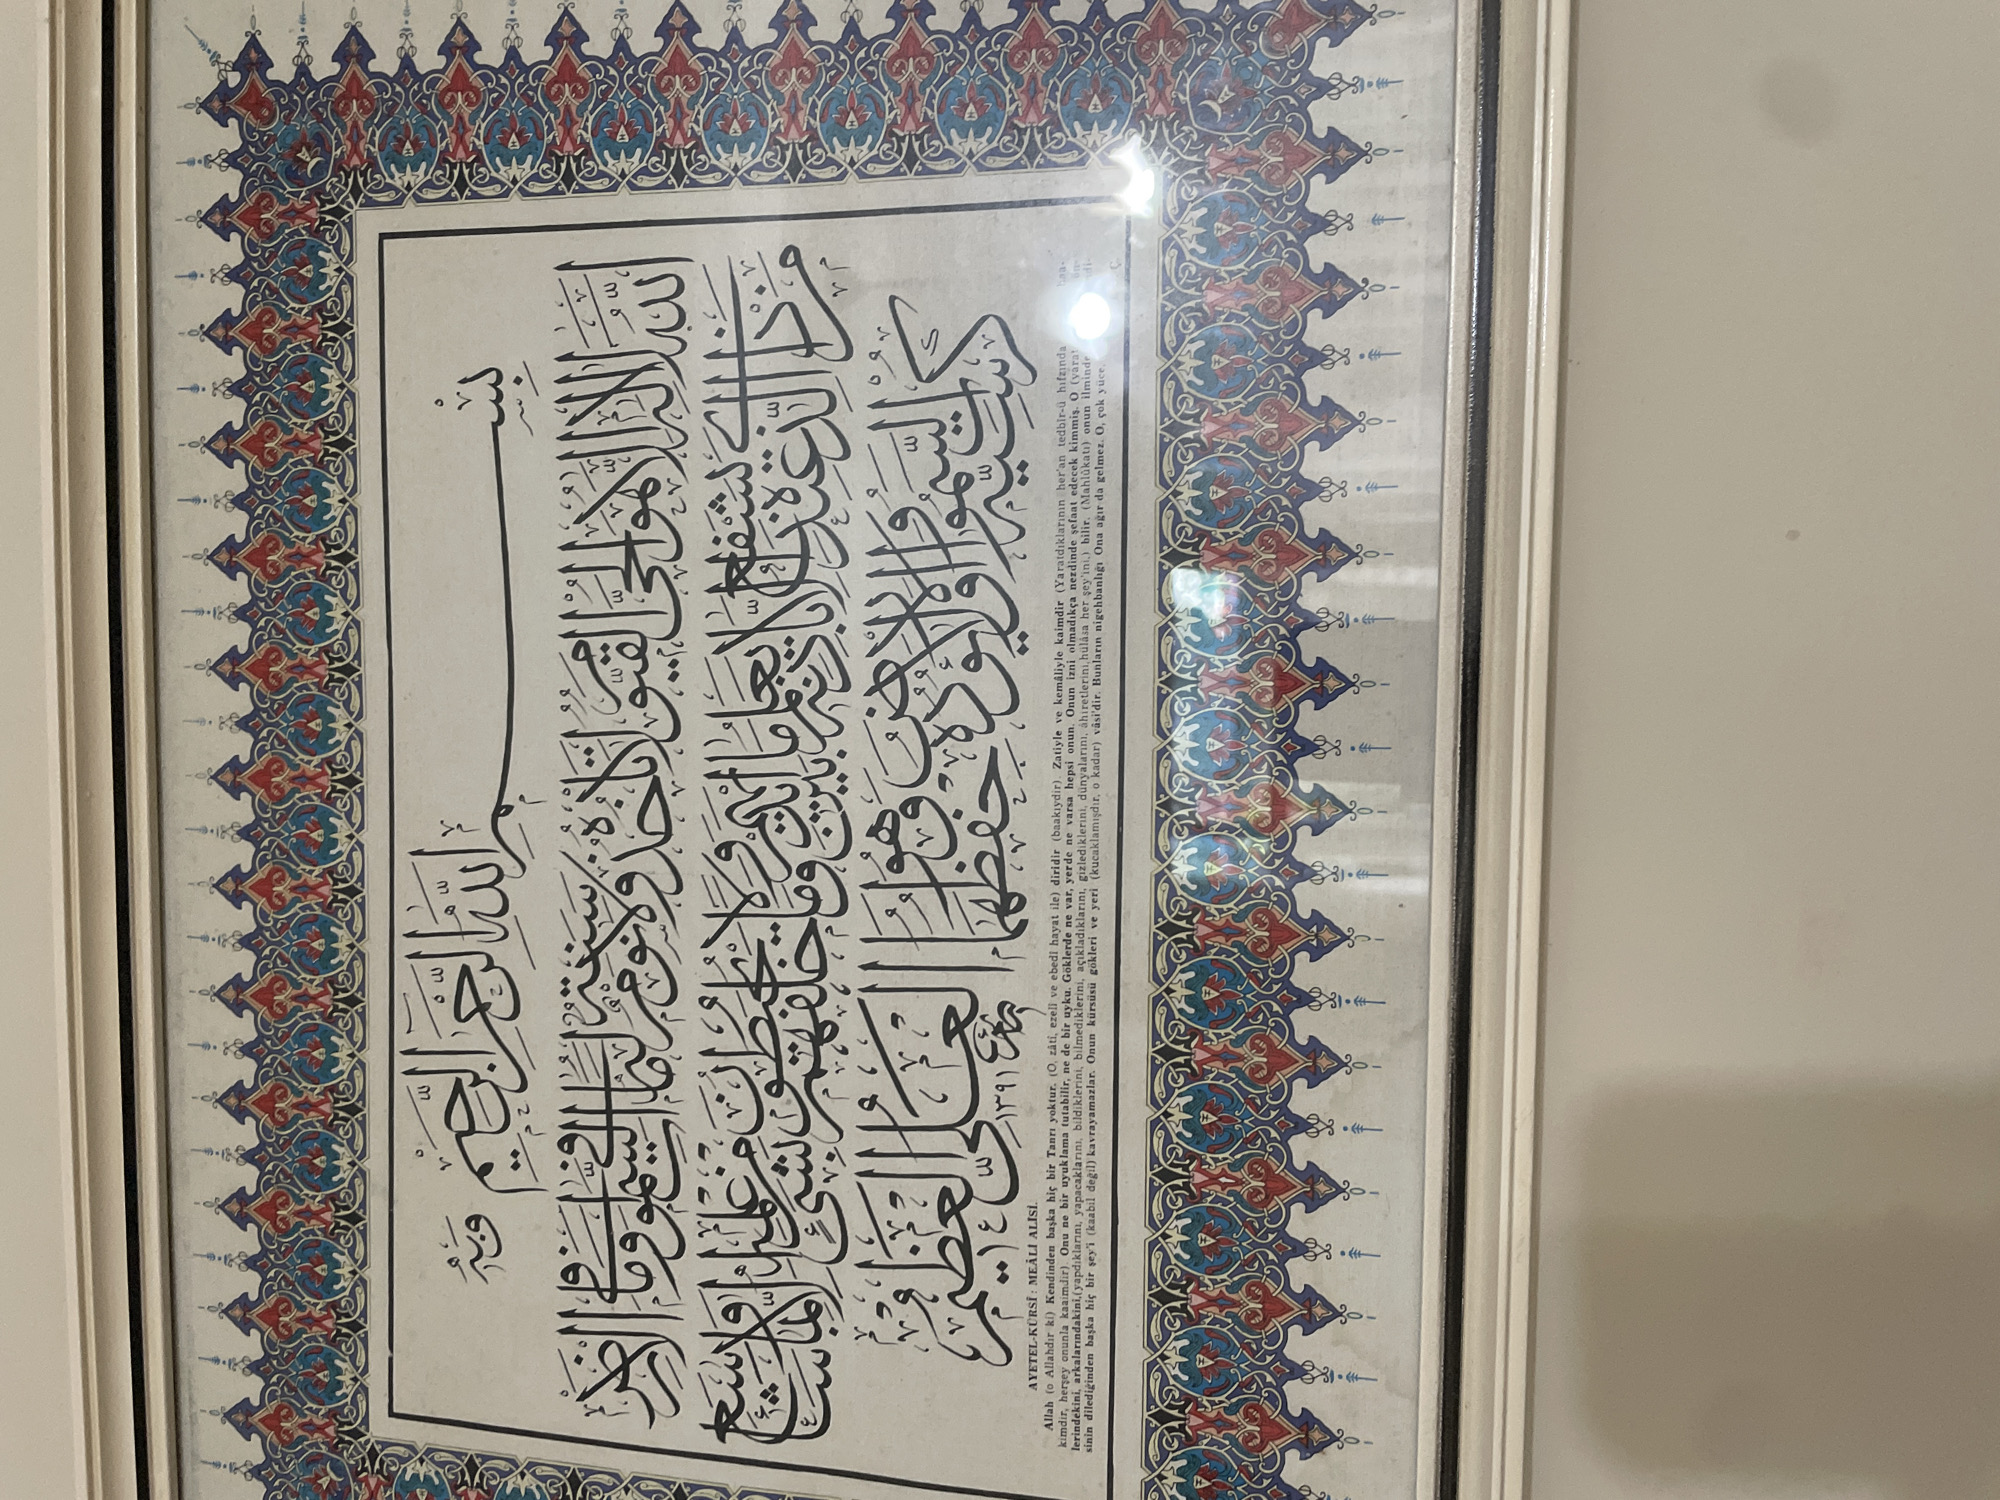 بِسْمِ اللّٰهِ الرَّحْمٰنِ الرَّحِيمِ
اللّٰهُ لَا اِلٰهَ اِلَّا هُوَ الْحَيُّ الْقَيُّومُ لَا تَأْخُذُهُ سِنَةٌ وَلَا نَوْمٌ لَهُ مَا فِي السَّمٰوَاتِ وَمَا فِي الْاَرْضِ
مَنْ ذَا الَّذِي يَشْفَعُ عِنْدَهُ اِلَّا بِاِذْنِهِ يَعْلَمُ مَا بَيْنَ اَيْدِيهِمْ وَمَا خَلْفَهُمْ وَلَا يُحِيطُونَ بِشَيْءٍ مِنْ عِلْمِهِ اِلَّا بِمَا شَاءَ وَسِعَ
كُرْسِيُّهُ السَّمٰوَاتِ وَالْاَرْضَ وَلَا يَؤُدُهُ حِفْظُهُمَا وَهُوَ الْعَلِيُّ الْعَظِيمُ
١٣٩١
AYETEL-KÜRSÎ: MEÂLİ ALİSİ.
Allah (o Allahdır ki) Kendinden başka hiç bir Tanrı yoktur. (O, zâtî, ezelî ve ebedî hayat ile) diridir (baakıydir). Zatiyle ve kemâliyle kaimdir (Yaratdıklarının her'an tedbîr-ü hıfzında
kimdir, herşey onunla kaaimdir). Onu ne bir uyuklama tutabilir, ne de bir uyku. Göklerde ne var, yerde ne varsa hepsi onun. Onun izni olmadıkça nezdinde şefaat edecek kimmiş. O
lerindekini, arkalarındakini,(yapdıklarını, yapacaklarını, bildiklerini, bilmediklerini, açıkladıklarını, gizlediklerini, dünyalarını, âhıretlerini,hülâsa her şey'ini,) bilir. (Mahlûkatı) onun ilminde
sinin dilediğinden başka hiç bir şey'i (kaabil değil) kavrayamazlar. Onun kürsüsü gökleri ve yeri (kucaklamışdır, o kadar) vâsi'dir. Bunların nigehbanlığı Ona ağır da gelmez. O, çok yüce,